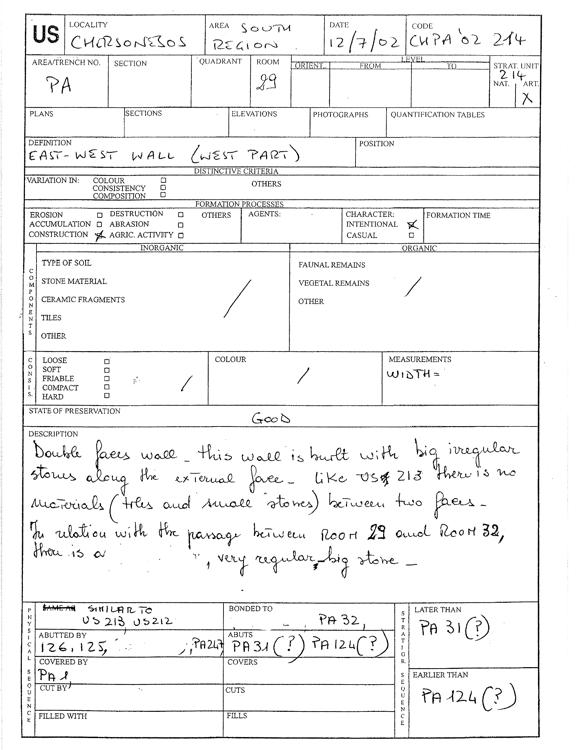 US
LOCALITY
CHERSONESOS
AREA SOUTH
REGION
DATE
12/7/02
CODE
CHPA '02 214
AREA/TRENCH NO.
PA
SECTION
QUADRANT
ROOM
29
LEVEL
ORIENT.
FROM
TO
STRAT. UNIT
214
NAT.
ART.
X
PLANS
SECTIONS
ELEVATIONS
PHOTOGRAPHS
QUANTIFICATION TABLES
DEFINITION
EAST-WEST WALL (WEST PART)
POSITION
DISTINCTIVE CRITERIA
VARIATION IN:
COLOUR
CONSISTENCY
COMPOSITION
OTHERS
FORMATION PROCESSES
EROSION
DESTRUCTION
OTHERS
AGENTS:
CHARACTER:
FORMATION TIME
ACCUMULATION
ABRASION
INTENTIONAL
CONSTRUCTION
AGRIC. ACTIVITY
CASUAL
COMPONENTS
INORGANIC
ORGANIC
TYPE OF SOIL
STONE MATERIAL
CERAMIC FRAGMENTS
TILES
OTHER
FAUNAL REMAINS
VEGETAL REMAINS
OTHER
CONSIS.
LOOSE
SOFT
FRIABLE
COMPACT
HARD
COLOUR
MEASUREMENTS
WIDTH=
STATE OF PRESERVATION
GOOD
DESCRIPTION
Double faces wall - this wall is built with big irregular
stones along the external face - like US 213 there is no
materials (tiles and small stones) between two faces -
In relation with the passage between ROOM 29 and ROOM 32,
there is a , very regular big stone -
PHYSICAL SEQUENCE
SAME AS SIMILAR TO
US 213 US212
BONDED TO
PA 32,
ABUTTED BY
126, 125, , PA247
ABUTS
PA31(?) PA124(?)
COVERED BY
PA 1
COVERS
CUT BY
CUTS
FILLED WITH
FILLS
STRATIGR. SEQUENCE
LATER THAN
PA 31(?)
EARLIER THAN
PA 124(?)